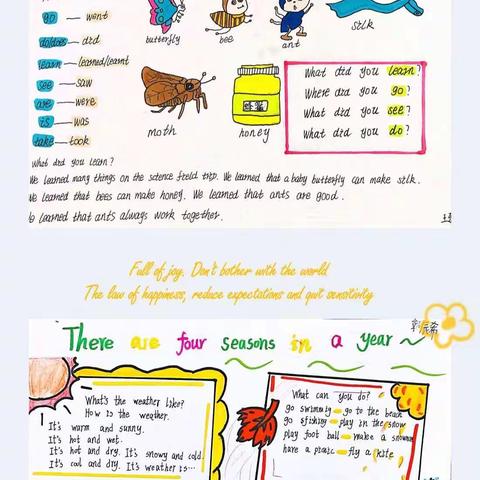 go — went
butterfly bee ant silk
do/does — did
learn — learned/learnt
see — saw
are — were
is — was
take — took
moth honey
蜂蜜
What did you learn?
Where did you go?
What did you see?
What did you do?
What did you learn?
We learned many things on the science field trip. We learned that a baby butterfly can make silk.
We learned that bees can make honey. We learned that ants are good.
We learned that ants always work together.
Full of joy. Don't bother with the world
The law of happiness, reduce expectations and quit sensitivity
There are four seasons in a year
What's the weather like?
How is the weather.
It's warm and sunny.
It's hot and wet.
It's hot and dry. It's snowy and cold.
It's cool and dry. It's weather is...
What can you do?
go swimming go to the beach
go fishing play in the snow
play foot ball make a snowman
have a picnic fly a kite